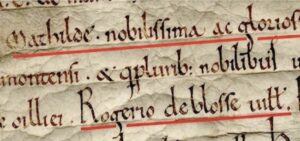 Mathilde . nobilissima ac glorios
montensi . & qplurib: nobilibus u
e oilliei . Rogerio deblosse uilt .